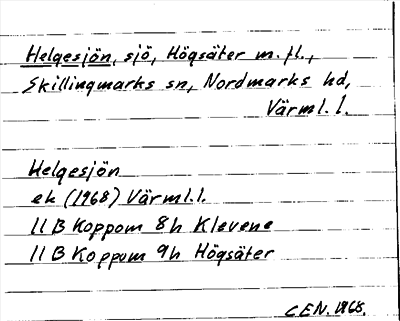 Helgesjön, sjö, Högsäter m.fl.,
Skillingmarks sn, Nordmarks hd,
Värml. l.
Helgesjön
ek (1968) Värml.l.
11 B Koppom 8h Klevene
11 B Koppom 9h Högsäter
CEN. 1968.